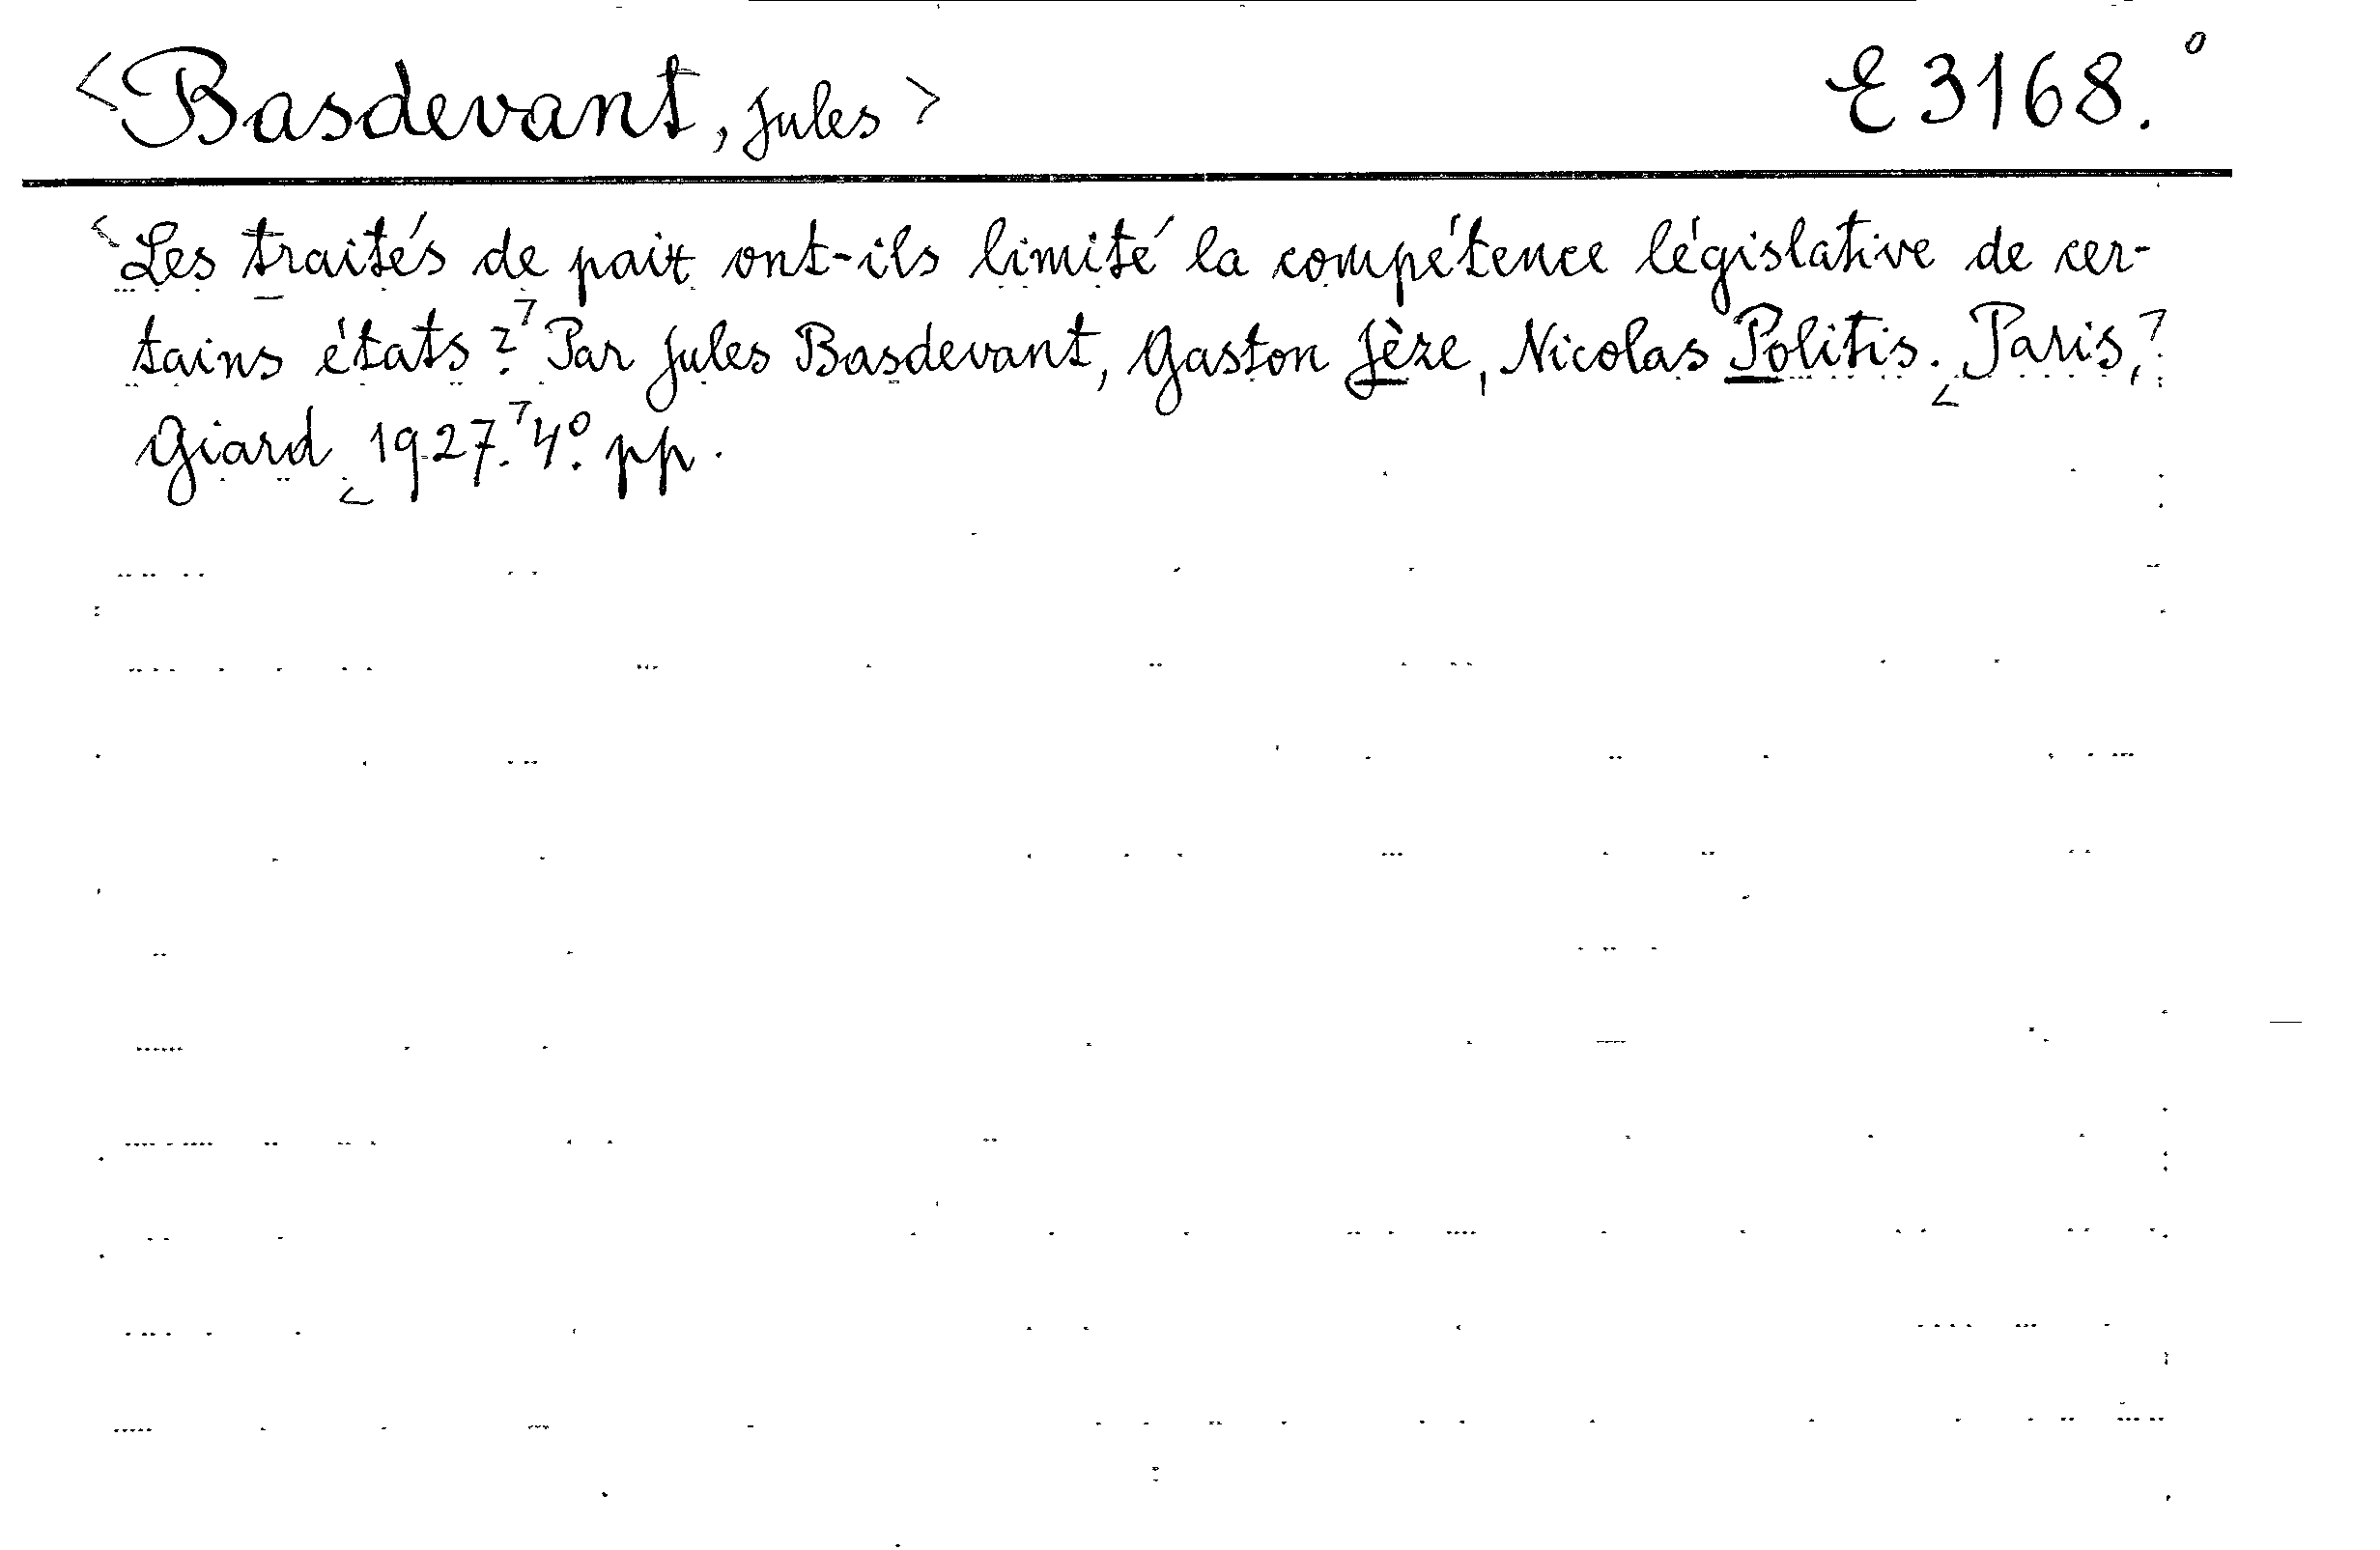 <Basdevant, Jules> E 3168.°
Les traités de paix ont-ils limité la compétence législative de cer-
tains états? Par Jules Basdevant, Gaston Jèze, Nicolas Politis. Paris,
Giard 1927. 4°. pp.